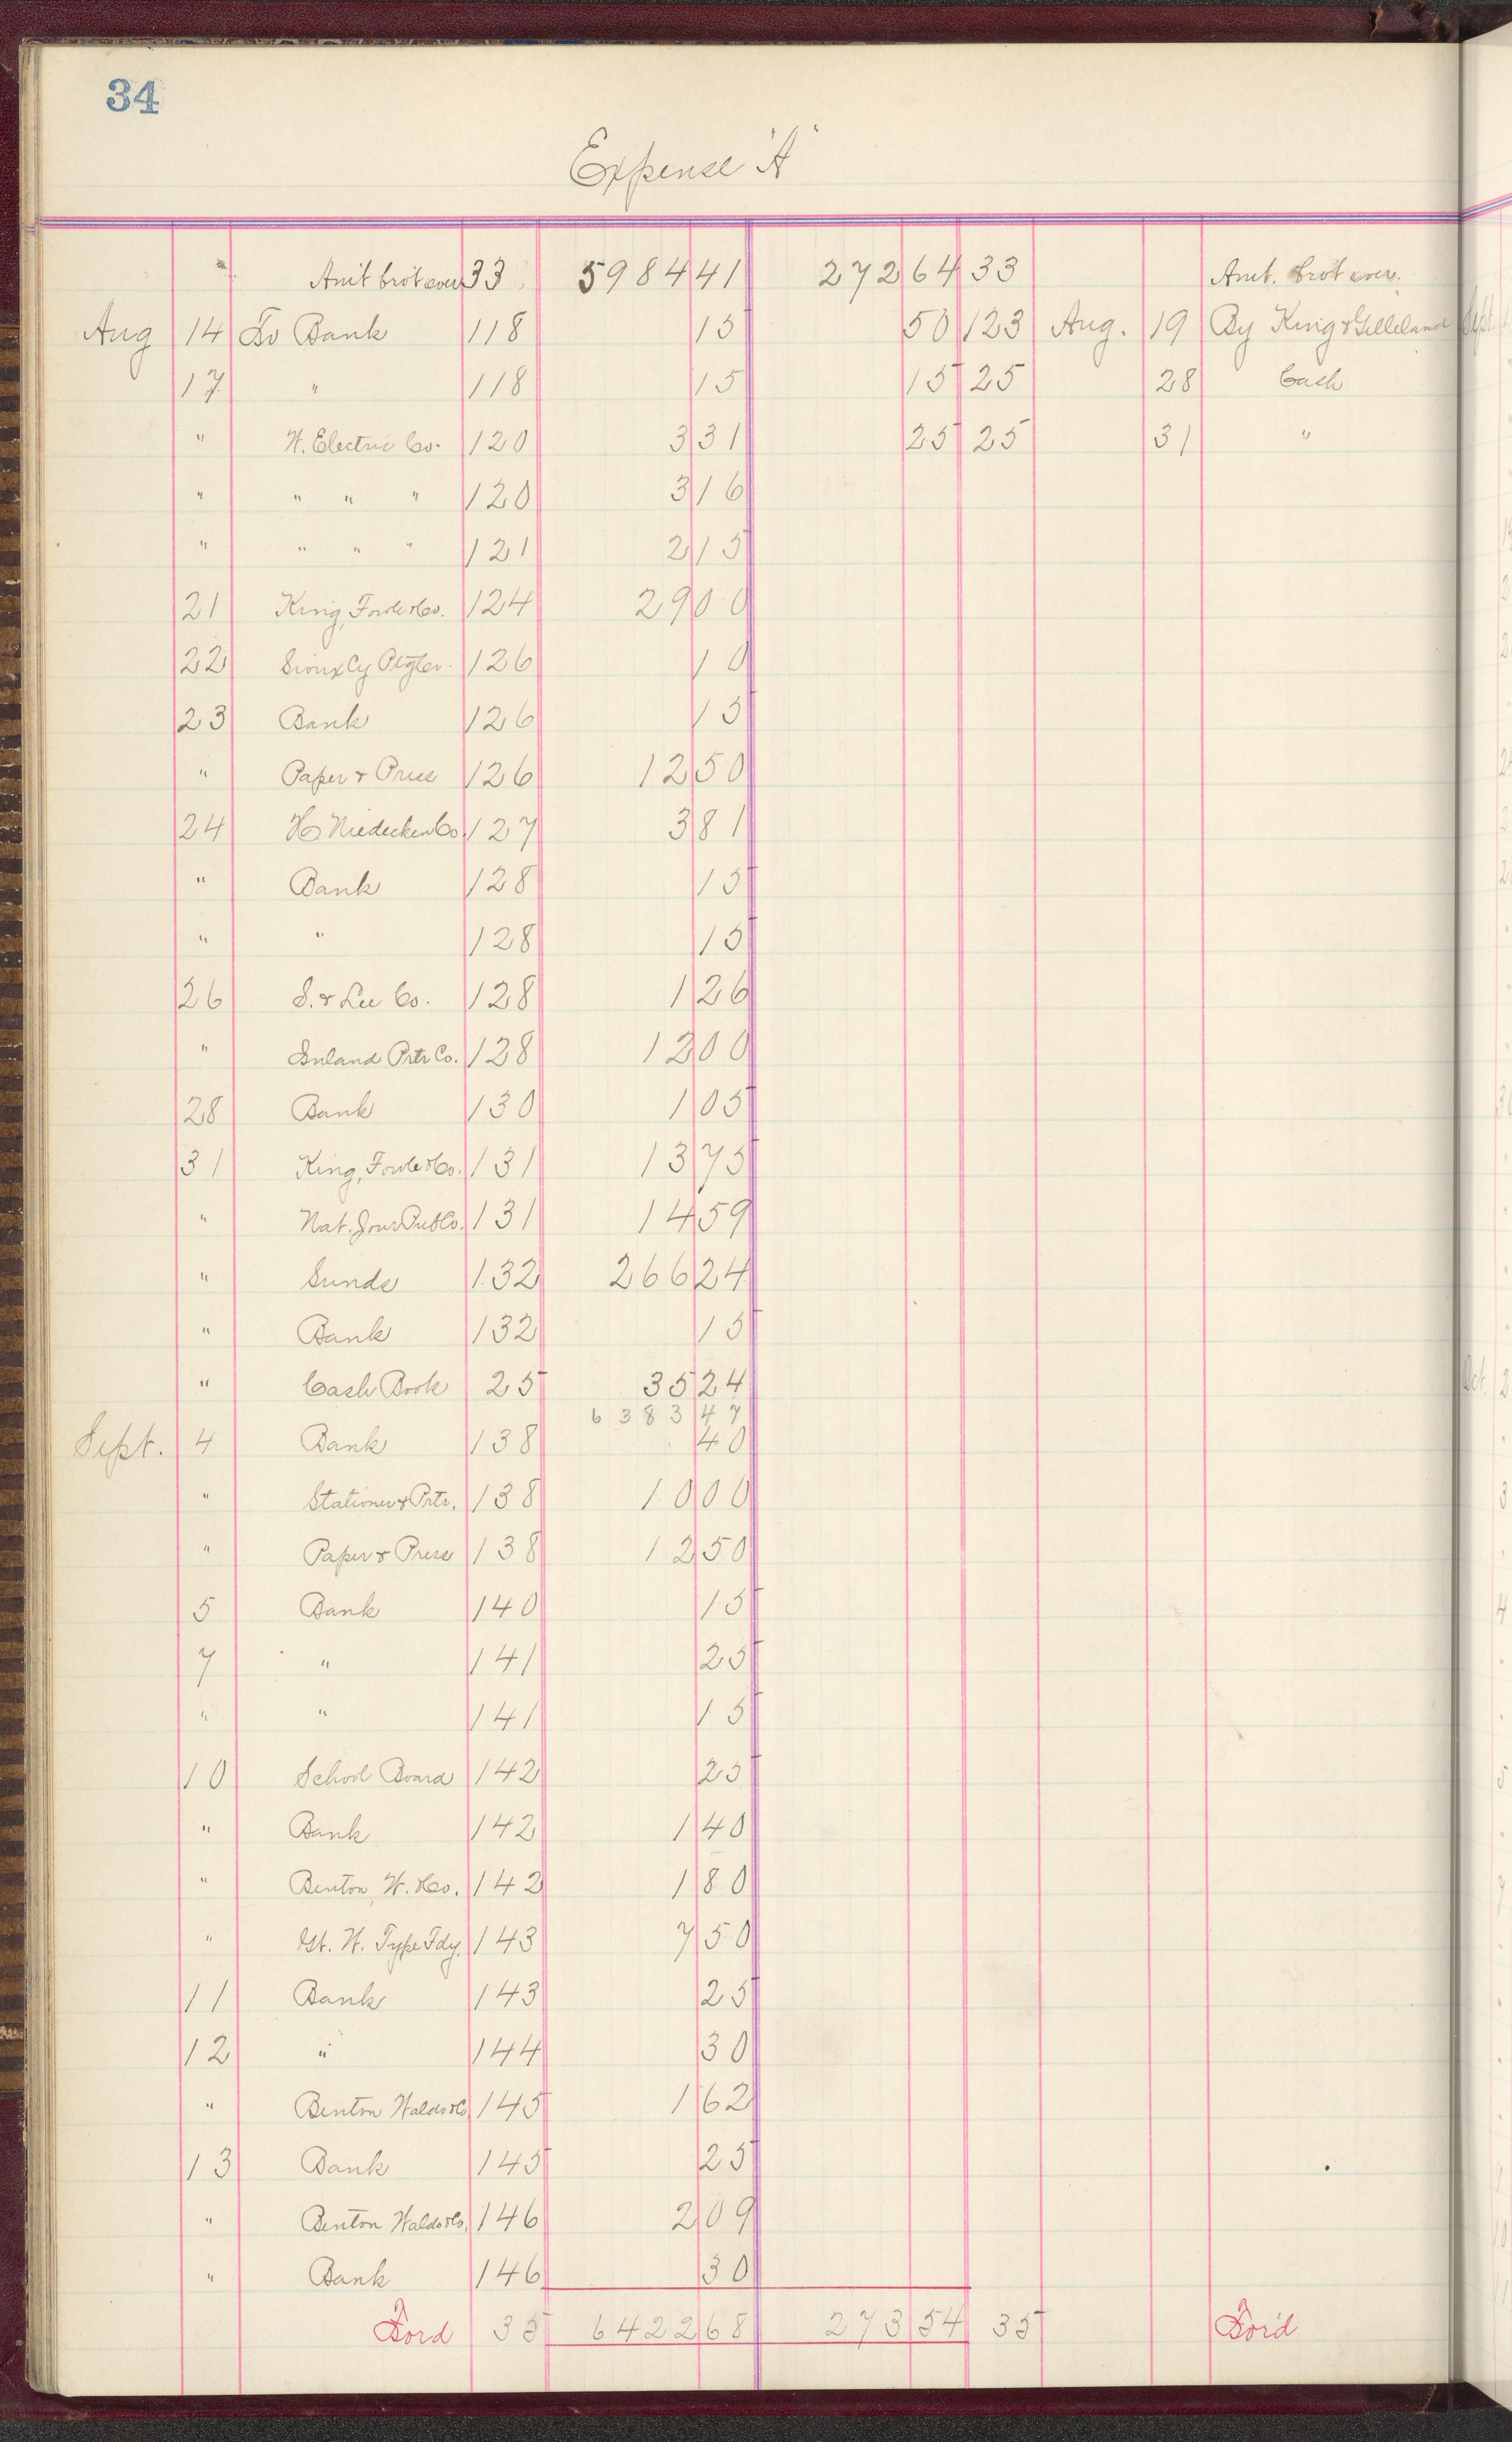 34
Expense "A"
Am't bro't over 33 5984 41 272 64 33 Amt. bro't over.
Aug 14 To Bank 118 15 50 123 Aug. 19 By King & Gilleland
17 " 118 15 15 25 28 Cash
" W. Electric Co. 120 3 31 25 25 31 "
" " " " 120 3 16
" " " " 121 2 15
21 King, Fowle & Co. 124 29 00
22 Sioux Cy Ptg Co. 126 10
23 Bank 126 15
" Paper & Press 126 12 50
24 H Niedecken Co 127 3 81
" Bank 128 15
" " 128 15
26 S. & Lee Co. 128 1 26
" Inland Prtr Co. 128 12 00
28 Bank 130 1 05
31 King, Fowle & Co. 131 13 75
" Nat. Jour Pub Co. 131 14 59
" Sunds 132 266 24
" Bank 132 15
" Cash Book 25 35 24
6383 47
Sept. 4 Bank 138 40
" Stationer & Prtr. 138 10 00
" Paper & Press 138 12 50
5 Bank 140 15
7 " 141 25
" " 141 15
10 School Board 142 25
" Bank 142 1 40
" Benton, W. & Co. 142 1 80
" Gt. W. Type Fdy. 143 7 50
11 Bank 143 25
12 " 144 30
" Benton Waldo & Co 145 1 62
13 Bank 145 25
" Benton Waldo & Co. 146 2 09
" Bank 146 30
For'd 35 6422 68 273 54 35 For'd